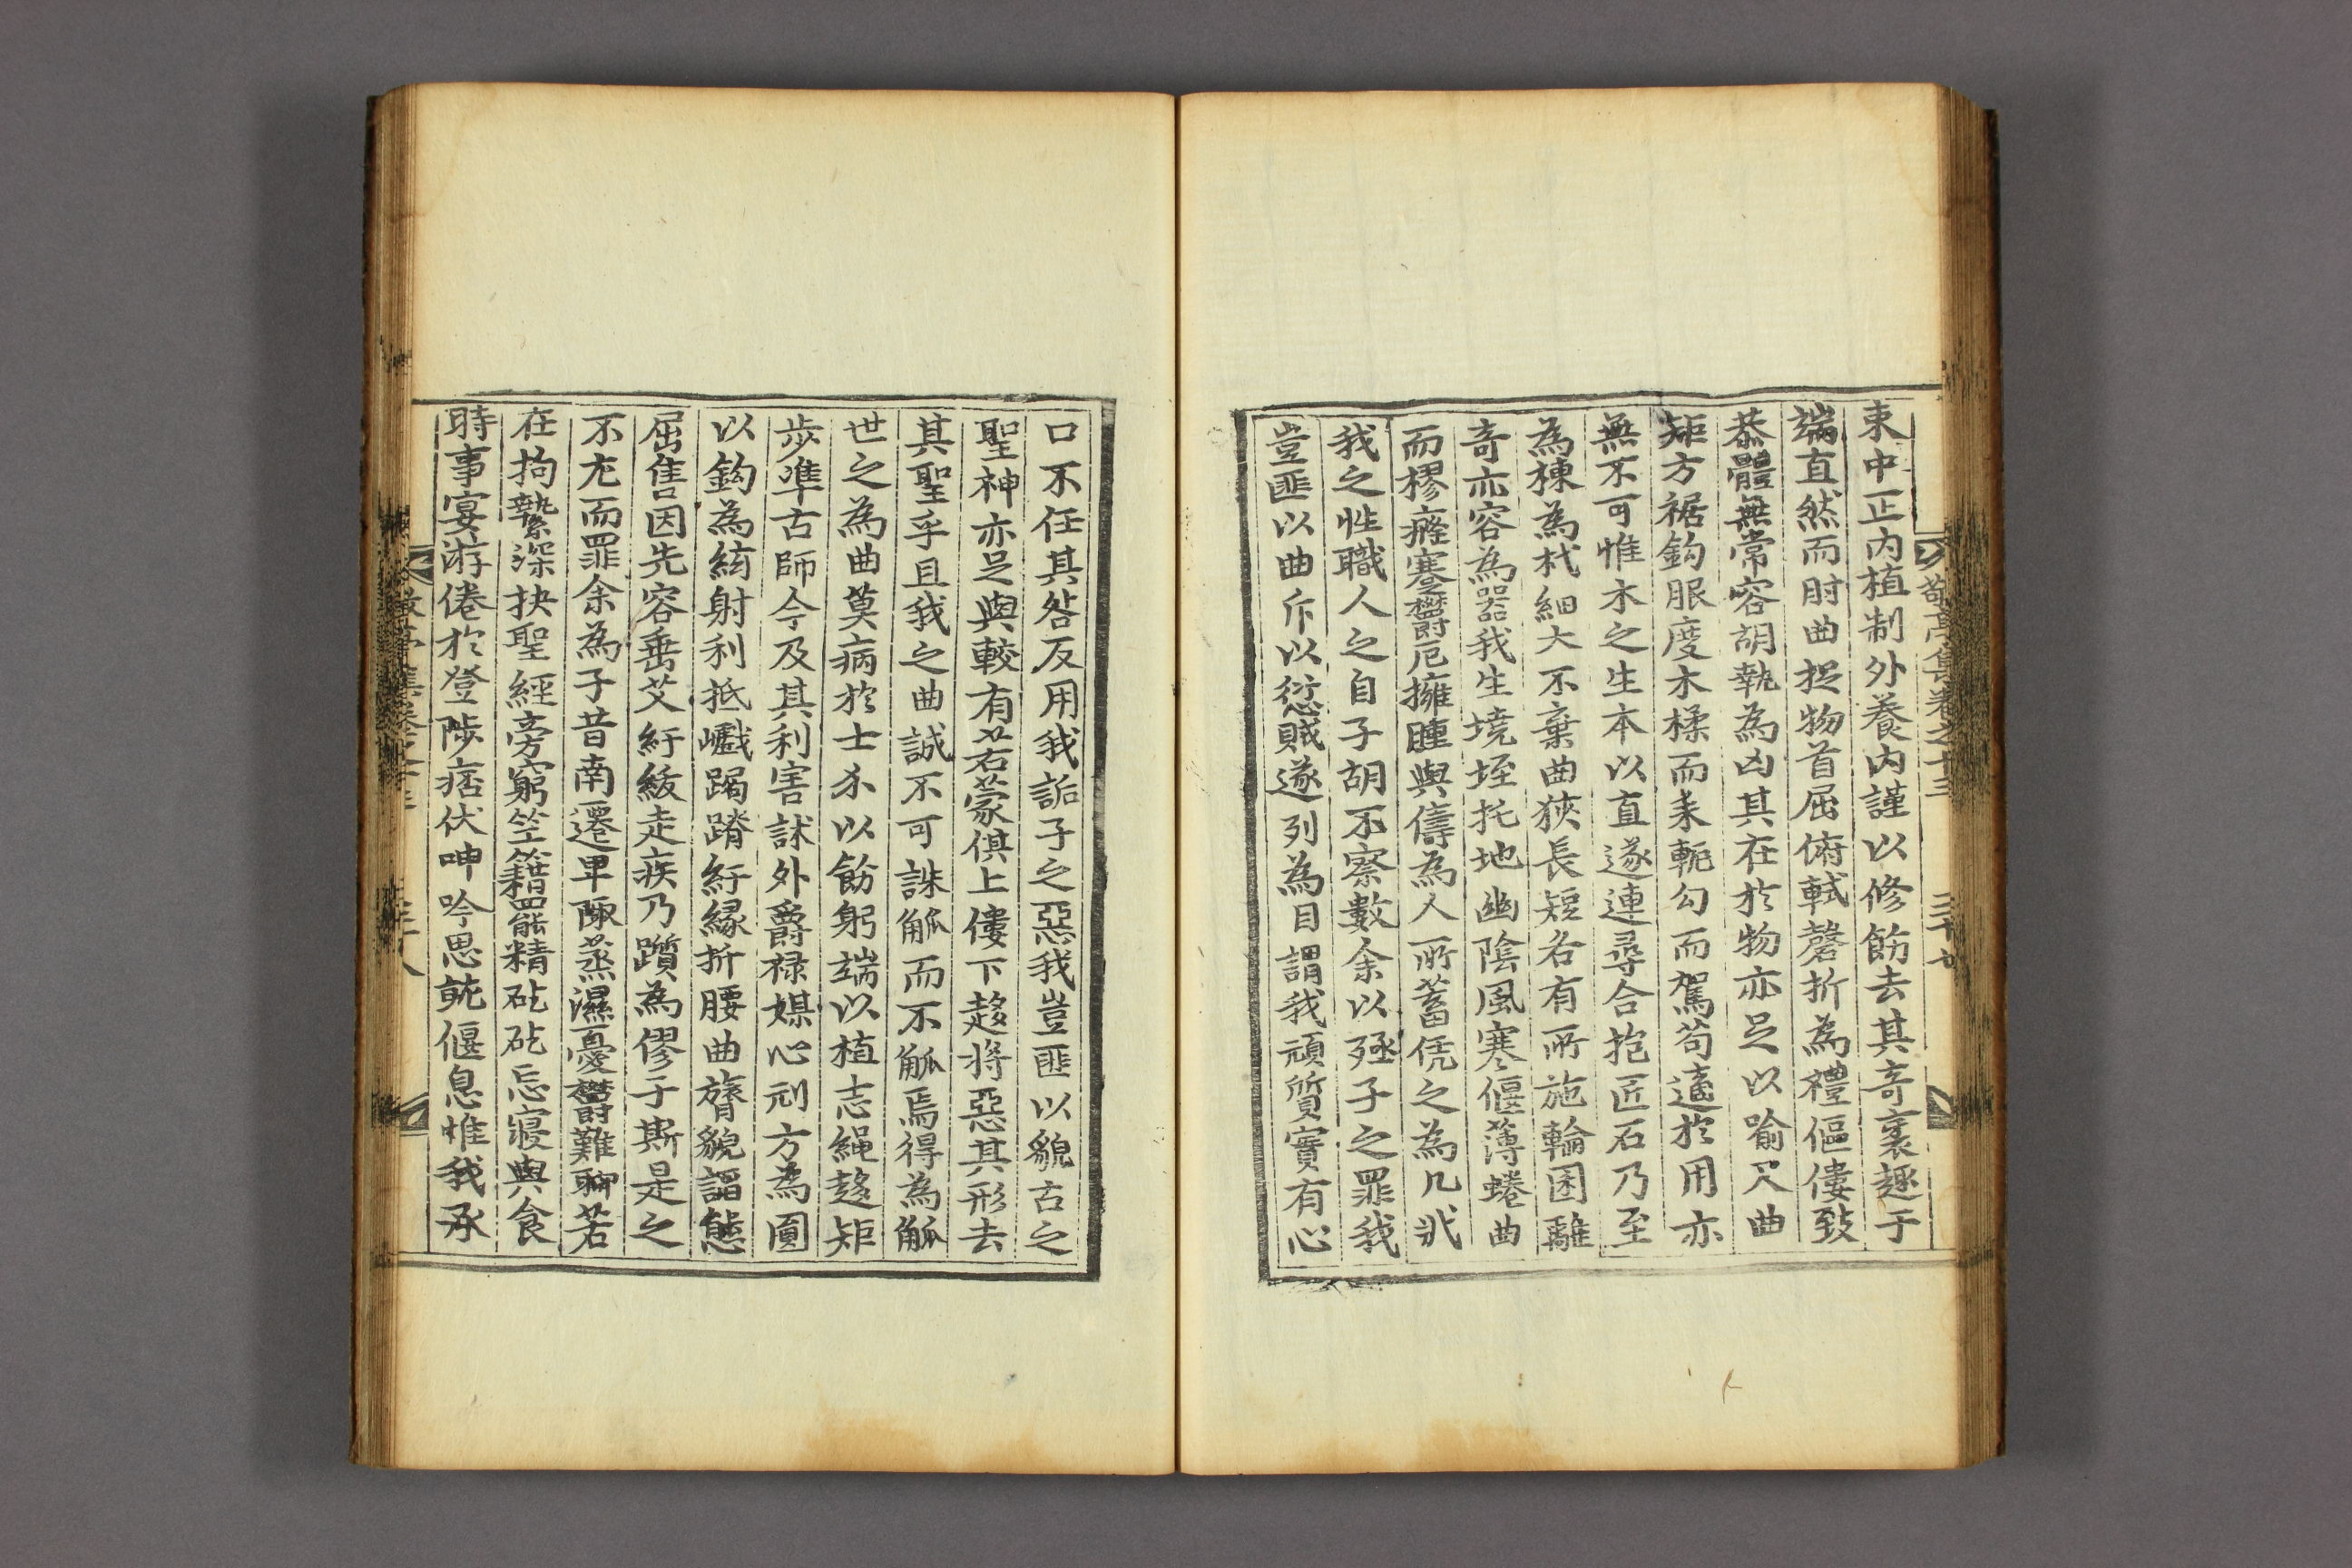 敬亭集卷之十三 三十七
束中正內植制外養內謹以修飭去其奇袤趣于
端直然而肘曲捉物首屈俯軾磬折爲禮傴僂致
恭體無常容胡執爲凶其在於物亦足以喻尺曲
矩方裾鈎服度木楺而耒軛勾而駕苟適於用亦
無不可惟木之生本以直遂連尋合抱匠石乃至
爲棟爲杙細大不棄曲狹長短各有所施輪囷離
奇亦容爲器我生墝垤托地幽陰風寒偃薄蜷曲
而樛癃蹇欝厄擁腫與儔爲人所蓄凭之爲几戕
我之性職人之自子胡不察數余以殛子之罪我
豈匪以曲斥以愆賊遂列爲目謂我頑質實有心
口不任其咎反用我詬子之惡我豈匪以貌古之
聖神亦足與較有若蒙倶上僂下趍將惡其形去
其聖乎且我之曲誠不可誅觚而不觚焉得爲觚
世之爲曲莫病於士尒以飭躬端以植志繩趍矩
步準古師今及其利害訹外爵祿媒心刓方爲圓
以鈎爲絃射利抵巇跼蹐紆緣折腰曲膂貌謟態
屈售因先容垂艾紆綬走疾乃躓爲僇于斯是之
不尤而罪余爲子昔南遷卑陬蒸濕憂欝難聊若
在拘縶深抉聖經旁窮竺籍罷精矻矻忘寢與食
時事宴游倦於登陟痞伏呻吟思就偃息惟我承
三十八